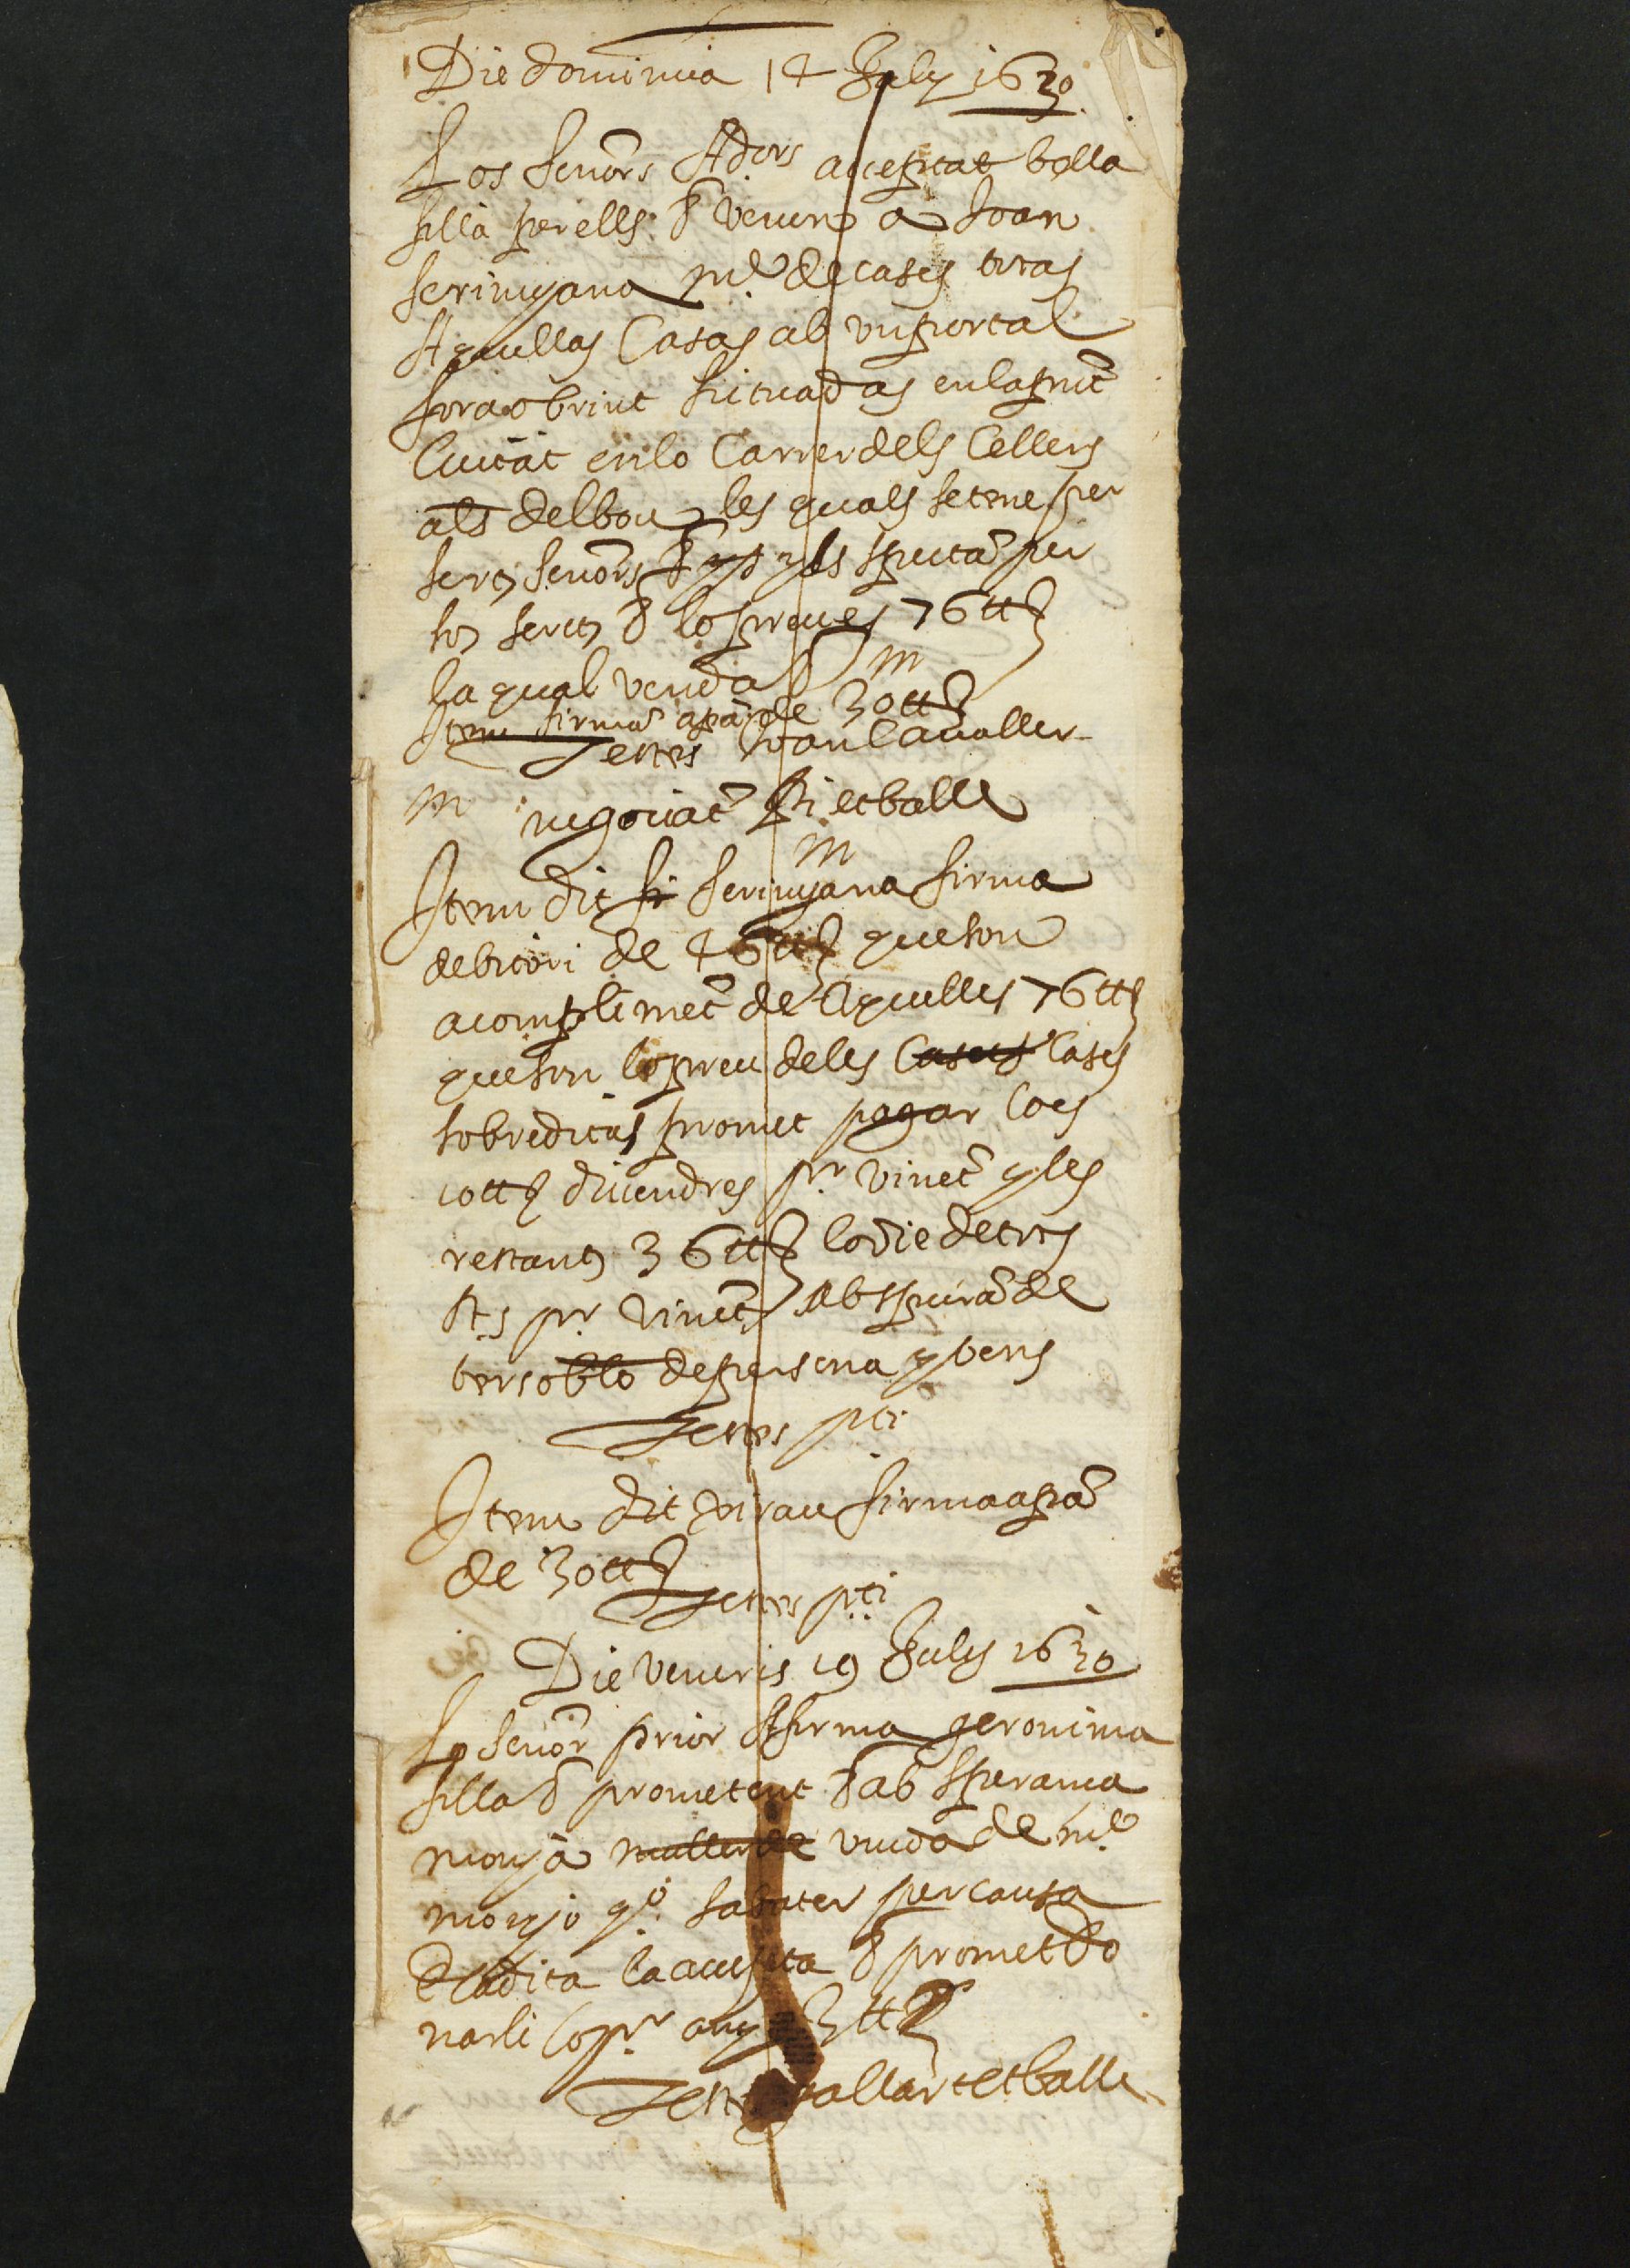 Die dominica 14 July 1630
Los senors Adors acceptat bolla
silla per ells & venen a Joan
serinyana me de cases totas
Aquellas Casas ab un portal
fora obrint situadas en la pnt
Ciutat en lo Carrer dels Cellers
als del bou les quals se tene per
sers senors & y spectã per
sos serts & lo preu es 76 ll
la qual venda m
Item firma apã de 30 ll
Testes Joan Cavaller
m negociat et balle
m
Item dit serinyana firma
debitori de 46 ll que son
a compliment de Aquelles 76 ll
que son lo preu de les Cases Cases
sobreditas promet pagar ço es
10 ll divendres pr vinet y les
restants 36 ll lo die de tots
Sts pr vinet ab spura de
ters oblo de persona y bens
Testes pti
Item dit firma apã
de 30 ll
Testes pti
Die veneris 19 July 1630
Lo senor prior firma geronima
silla & prometent & ab sperança
monja muller de viuda de me
monjo qo sabater per causa
de ladita la accepta & promet do
narli lo pr any 3 ll
Testes gallart et balle